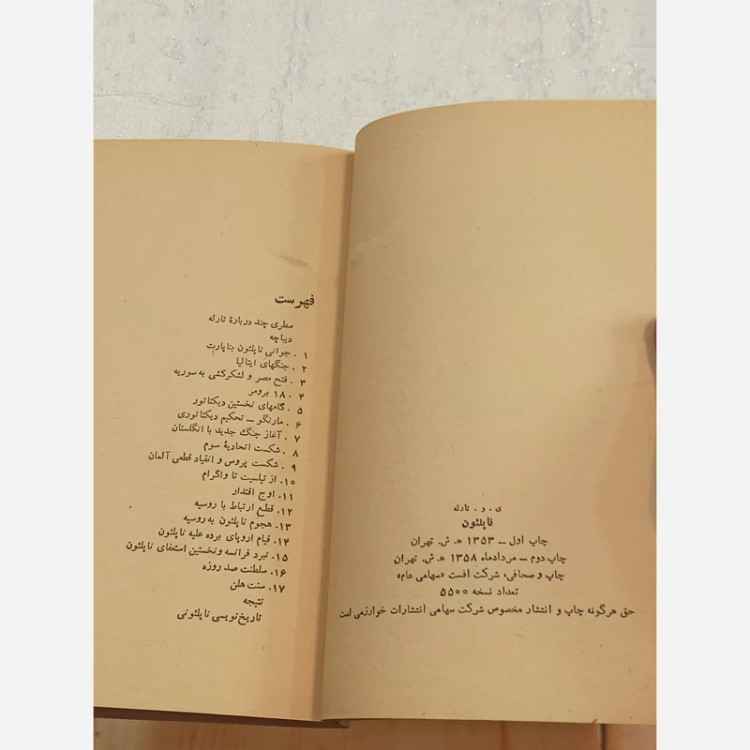 ی. و. تارله
ناپلئون
چاپ اول ــ ۱۳۵۳ ه‍. ش. تهران
چاپ دوم ــ مردادماه ۱۳۵۸ ه‍. ش. تهران
چاپ و صحافی: شرکت افست «سهامی عام»
تعداد نسخه ۵۵۰۰
حق هرگونه چاپ و انتشار مخصوص شرکت سهامی انتشارات خوارزمی است
فهرست
سطری چند دربارهٔ تارله
دیباچه
۱. جوانی ناپلئون بناپارت
۲. جنگهای ایتالیا
۳. فتح مصر و لشکرکشی به سوریه
۴. ۱۸ برومر
۵. گامهای نخستین دیکتاتور
۶. مارنگو ــ تحکیم دیکتاتوری
۷. آغاز جنگ جدید با انگلستان
۸. شکست اتحادیهٔ سوم
۹. شکست پروس و انقیاد قطعی آلمان
۱۰. از تیلسیت تا واگرام
۱۱. اوج اقتدار
۱۲. قطع ارتباط با روسیه
۱۳. هجوم ناپلئون به روسیه
۱۴. قیام اروپای برده علیه ناپلئون
۱۵. نبرد فرانسه و نخستین استعفای ناپلئون
۱۶. سلطنت صد روزه
۱۷. سنت هلن
نتیجه
تاریخ‌نویسی ناپلئونی